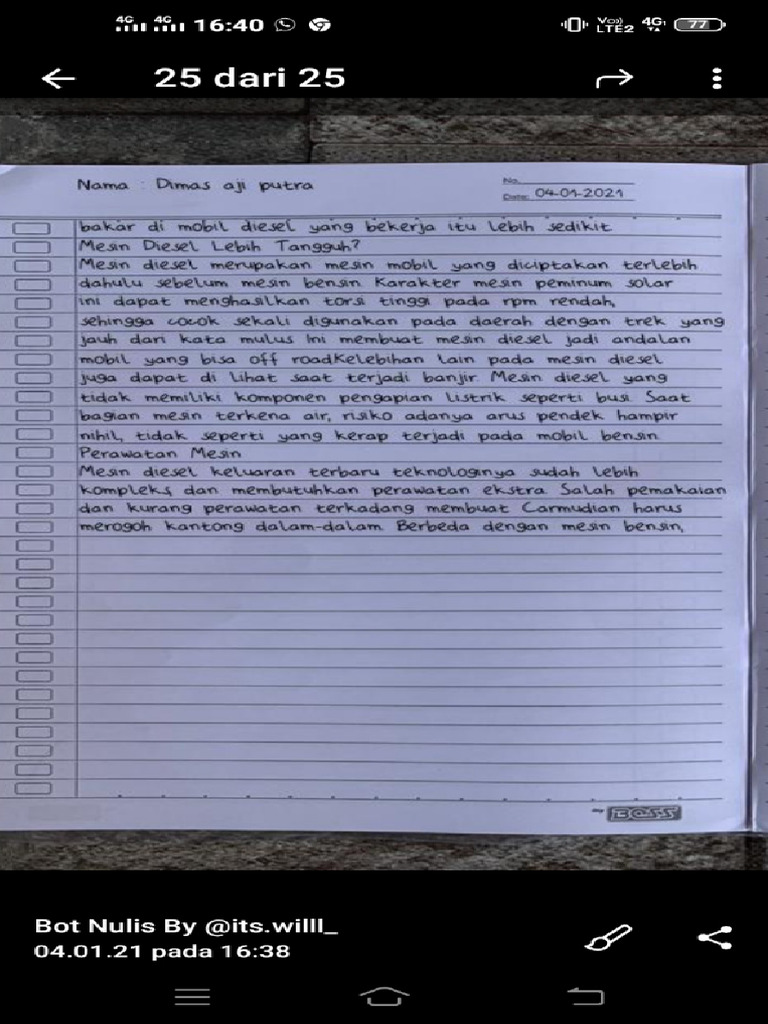 4G 4G 16:40 Vo)) LTE2 4G 77
25 dari 25
Nama : Dimas aji putra
No.
Date: 04-01-2021
bakar di mobil diesel yang bekerja itu lebih sedikit
Mesin Diesel Lebih Tangguh?
Mesin diesel merupakan mesin mobil yang diciptakan terlebih
dahulu sebelum mesin bensin. Karakter mesin peminum solar
ini dapat menghasilkan torsi tinggi pada rpm rendah,
sehingga cocok sekali digunakan pada daerah dengan trek yang
jauh dari kata mulus Ini membuat mesin diesel jadi andalan
mobil yang bisa off roadKelebihan lain pada mesin diesel
juga dapat di lihat saat terjadi banjir. Mesin diesel yang
tidak memiliki komponen pengapian listrik seperti busi. Saat
bagian mesin terkena air, risiko adanya arus pendek hampir
nihil, tidak seperti yang kerap terjadi pada mobil bensin.
Perawatan Mesin
Mesin diesel keluaran terbaru teknologinya sudah lebih
kompleks dan membutuhkan perawatan ekstra. Salah pemakaian
dan kurang perawatan terkadang membuat Carmudian harus
merogoh kantong dalam-dalam. Berbeda dengan mesin bensin,
my BOSS
Bot Nulis By @its.willl_
04.01.21 pada 16:38